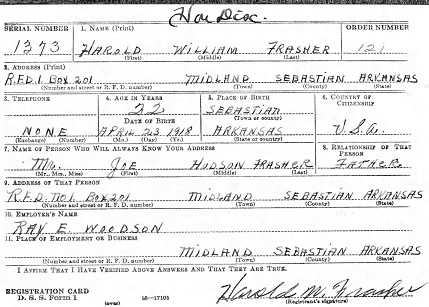 Hon Disc.
SERIAL NUMBER 1. NAME (Print) ORDER NUMBER
1373 HAROLD WILLIAM FRASHER 121
(First) (Middle) (Last)
2. ADDRESS (Print)
R.F.D.1 BOX 201 MIDLAND SEBASTIAN ARKANSAS
(Number and street or R. F. D. number) (Town) (County) (State)
3. TELEPHONE 4. AGE IN YEARS 5. PLACE OF BIRTH 6. COUNTRY OF CITIZENSHIP
22 SEBASTIAN
DATE OF BIRTH (Town or county)
NONE APRIL 23 1918 ARKANSAS U.S.A.
(Exchange) (Number) (Mo.) (Day) (Yr.) (State or country)
7. NAME OF PERSON WHO WILL ALWAYS KNOW YOUR ADDRESS 8. RELATIONSHIP OF THAT PERSON
MR. JOE HUDSON FRASHER FATHER
(Mr., Mrs., Miss) (First) (Middle) (Last)
9. ADDRESS OF THAT PERSON
R.F.D. NO.1 BOX 201 MIDLAND SEBASTIAN ARKANSAS
(Number and street or R. F. D. number) (Town) (County) (State)
10. EMPLOYER'S NAME
RAY E. WOODSON
11. PLACE OF EMPLOYMENT OR BUSINESS
MIDLAND SEBASTIAN ARKANSAS
(Number and street or R. F. D. number) (Town) (County) (State)
I AFFIRM THAT I HAVE VERIFIED ABOVE ANSWERS AND THAT THEY ARE TRUE.
REGISTRATION CARD
D. S. S. FORM 1 (over) 16—17105 Harold W. Frasher
(Registrant's signature)